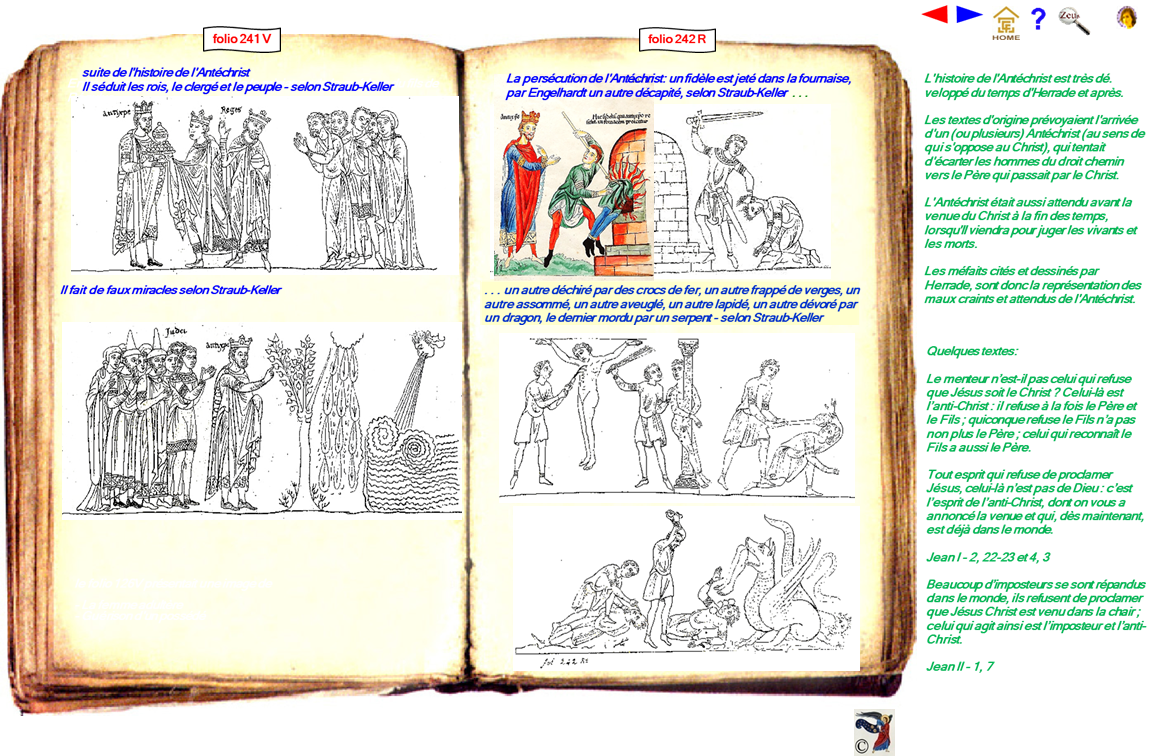 folio 241 V
suite de l'histoire de l'Antéchrist
Il séduit les rois, le clergé et le peuple - selon Straub-Keller
antyxpc
Reges
Il fait de faux miracles selon Straub-Keller
Judei
antypc
folio 242 R
La persécution de l'Antéchrist: un fidèle est jeté dans la fournaise,
par Engelhardt un autre décapité, selon Straub-Keller . . .
. . . un autre déchiré par des crocs de fer, un autre frappé de verges, un
autre assommé, un autre aveuglé, un autre lapidé, un autre dévoré par
un dragon, le dernier mordu par un serpent - selon Straub-Keller
fol 242 Ro
HOME
?
Zeus
L'histoire de l'Antéchrist est très dé.
veloppé du temps d'Herrade et après.
Les textes d'origine prévoyaient l'arrivée
d'un (ou plusieurs) Antéchrist (au sens de
qui s'oppose au Christ), qui tentait
d'écarter les hommes du droit chemin
vers le Père qui passait par le Christ.
L'Antéchrist était aussi attendu avant la
venue du Christ à la fin des temps,
lorsqu'il viendra pour juger les vivants et
les morts.
Les méfaits cités et dessinés par
Herrade, sont donc la représentation des
maux craints et attendus de l'Antéchrist.
Quelques textes:
Le menteur n'est-il pas celui qui refuse
que Jésus soit le Christ ? Celui-là est
l'anti-Christ : il refuse à la fois le Père et
le Fils ; quiconque refuse le Fils n'a pas
non plus le Père ; celui qui reconnaît le
Fils a aussi le Père.
Tout esprit qui refuse de proclamer
Jésus, celui-là n'est pas de Dieu : c'est
l'esprit de l'anti-Christ, dont on vous a
annoncé la venue et qui, dès maintenant,
est déjà dans le monde.
Jean I - 2, 22-23 et 4, 3
Beaucoup d'imposteurs se sont répandus
dans le monde, ils refusent de proclamer
que Jésus Christ est venu dans la chair ;
celui qui agit ainsi est l'imposteur et l'anti-
Christ.
Jean II - 1, 7
©